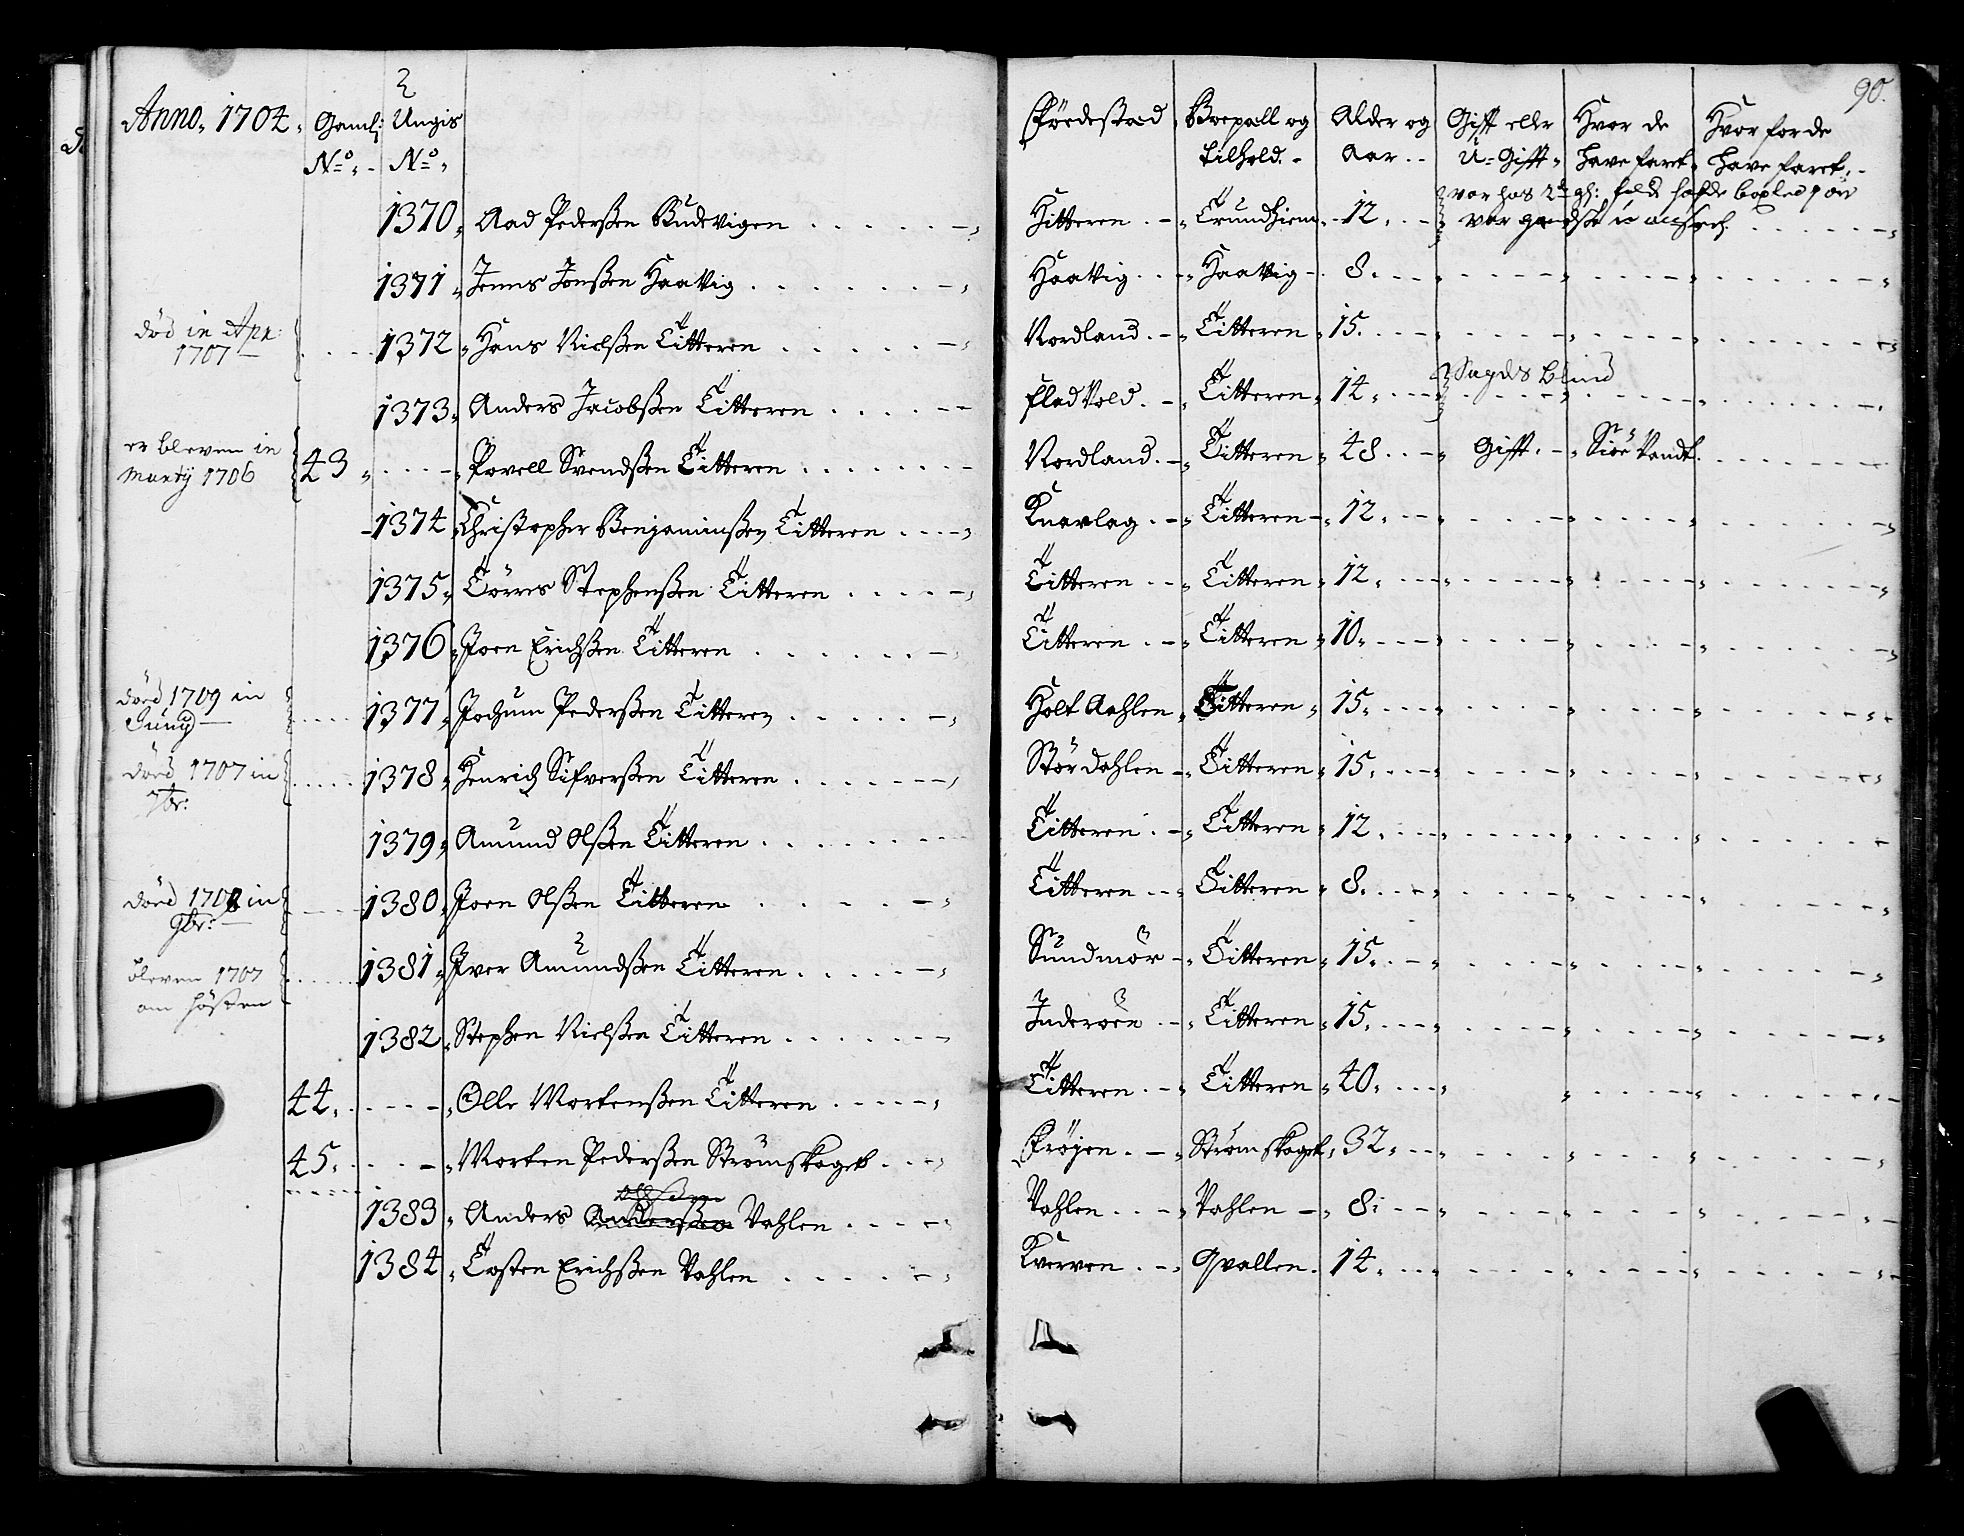 Anno, 1704, Gaml: Ungis Fördestad Boepall og Alder og Gift eller Hvor de Hvor for de 90.
No, No, tilhold. Aar. U=Gift, have faret, have faret,
1370, Aad Pederßen Budvigen Hitteren Trundhiem 12, var hos
1371, Jenns Jonßen HaaVig HaaVig HaaVig 8.
död in Apr: 1707 1372, Hans Nielßen Titteren Nordland Titteren 15.
1373, Anders Jacobßen Titteren FladVold Titteren 14, Sagdes blind
er bleven in Martij 1706 43, Povell Svendßen Titteren Nordland Titteren 48 Gift, Siöe Vandt
1374 Christopher Benjaminßen Titteren Knarlag Titteren 12,
1375, Törres Stephenßen Titteren Titteren Titteren 12,
1376, Joen Erichßen Titteren Titteren Titteren 10,
döed 1709 in Junij 1377, Jochum Pederßen Titteren Holt Aahlen Titteren 15,
döed 1707 in 7br: 1378, Henrich Sifverßen Titteren Stördahlen Titteren 15,
1379, Amund Olßen Titteren Titteren Titteren 12
döed 1708 in 9br: 1380, Joen Olßen Titteren Titteren Titteren 8.
bleven 1707 om hösten 1381, Iver Amundßen Titteren Sundmör Titteren 15,
1382, Stephen Nielßen Titteren Inderöen Titteren 15,
44, Olle Mortenßen Titteren Titteren Titteren 40,
45, Morten Pederßen Strömskaget Fröjen Strömskaget, 32,
Olßen
1383, Anders Anderßen Vahlen Vahlen Vahlen 8,
1384, Tosten Erichßen Vahlen Kverven Qvallen 14,